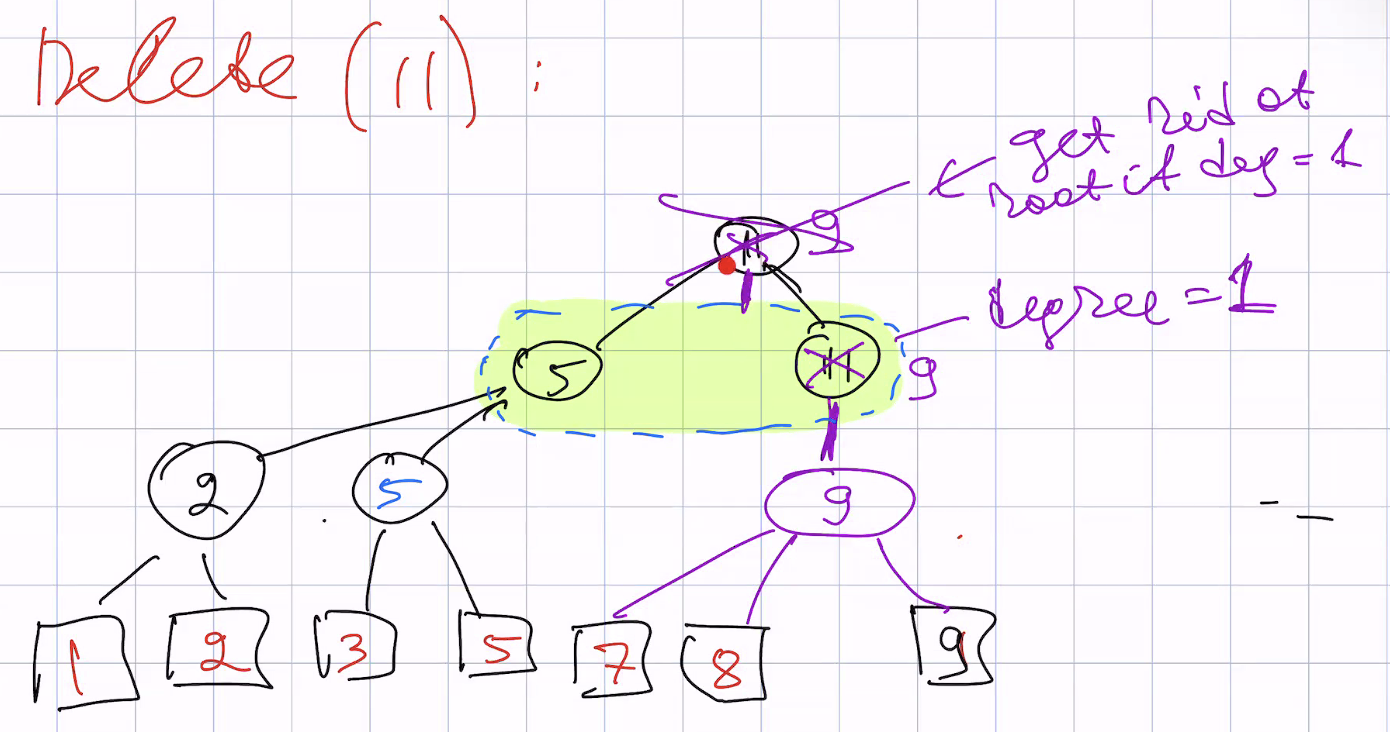 Delete (11) :
get rid of
root if deg = 1
11 9
degree = 1
5 11 9
2 5 9
1 2 3 5 7 8 9